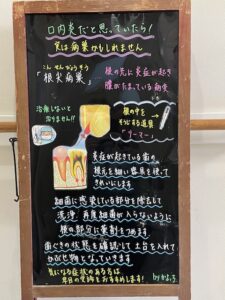 口内炎だと思っていたら!
実は病巣かもしれません
こんせんびょうそう
「根尖病巣」
根の先に炎症が起き
膿がたまっている病気
治療しないと
治りません!!
根の中を
そうじする道具
「リーマー」
炎症が起きている歯の
根元を細い器具を使って
きれいにします
細菌に感染している部分を除去して
洗浄 再度細菌が入らないように
根の部分に薬剤をつめます
歯ぐきの状態を確認して土台を入れて
かぶせ物となっていきます
気になる症状のある方は
早目の受診をおすすめします!
by